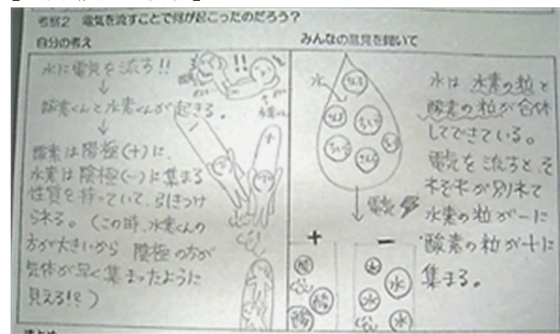 考察2 電気を流すことで何が起こったのだろう？
自分の考え
水に電気を流す!!
↓
酸素くんと水素くんが起きる。
↓
酸素は陽極(+)に、
水素は陰極(−)に集まる
性質を持っていて、引きつけ
られる。(この時、水素くんの
方が大きいから 陰極の方が
気体が早く集まったように
見える!?)
!!
みんなの意見を聞いて
水
↓電気
+
−
酸
水
酸
水
水
水は 水素の粒と
酸素の粒が合体
してできている。
電気を流すと、そ
れぞれが別れて
水素の粒が−に
酸素の粒が+に
集まる。